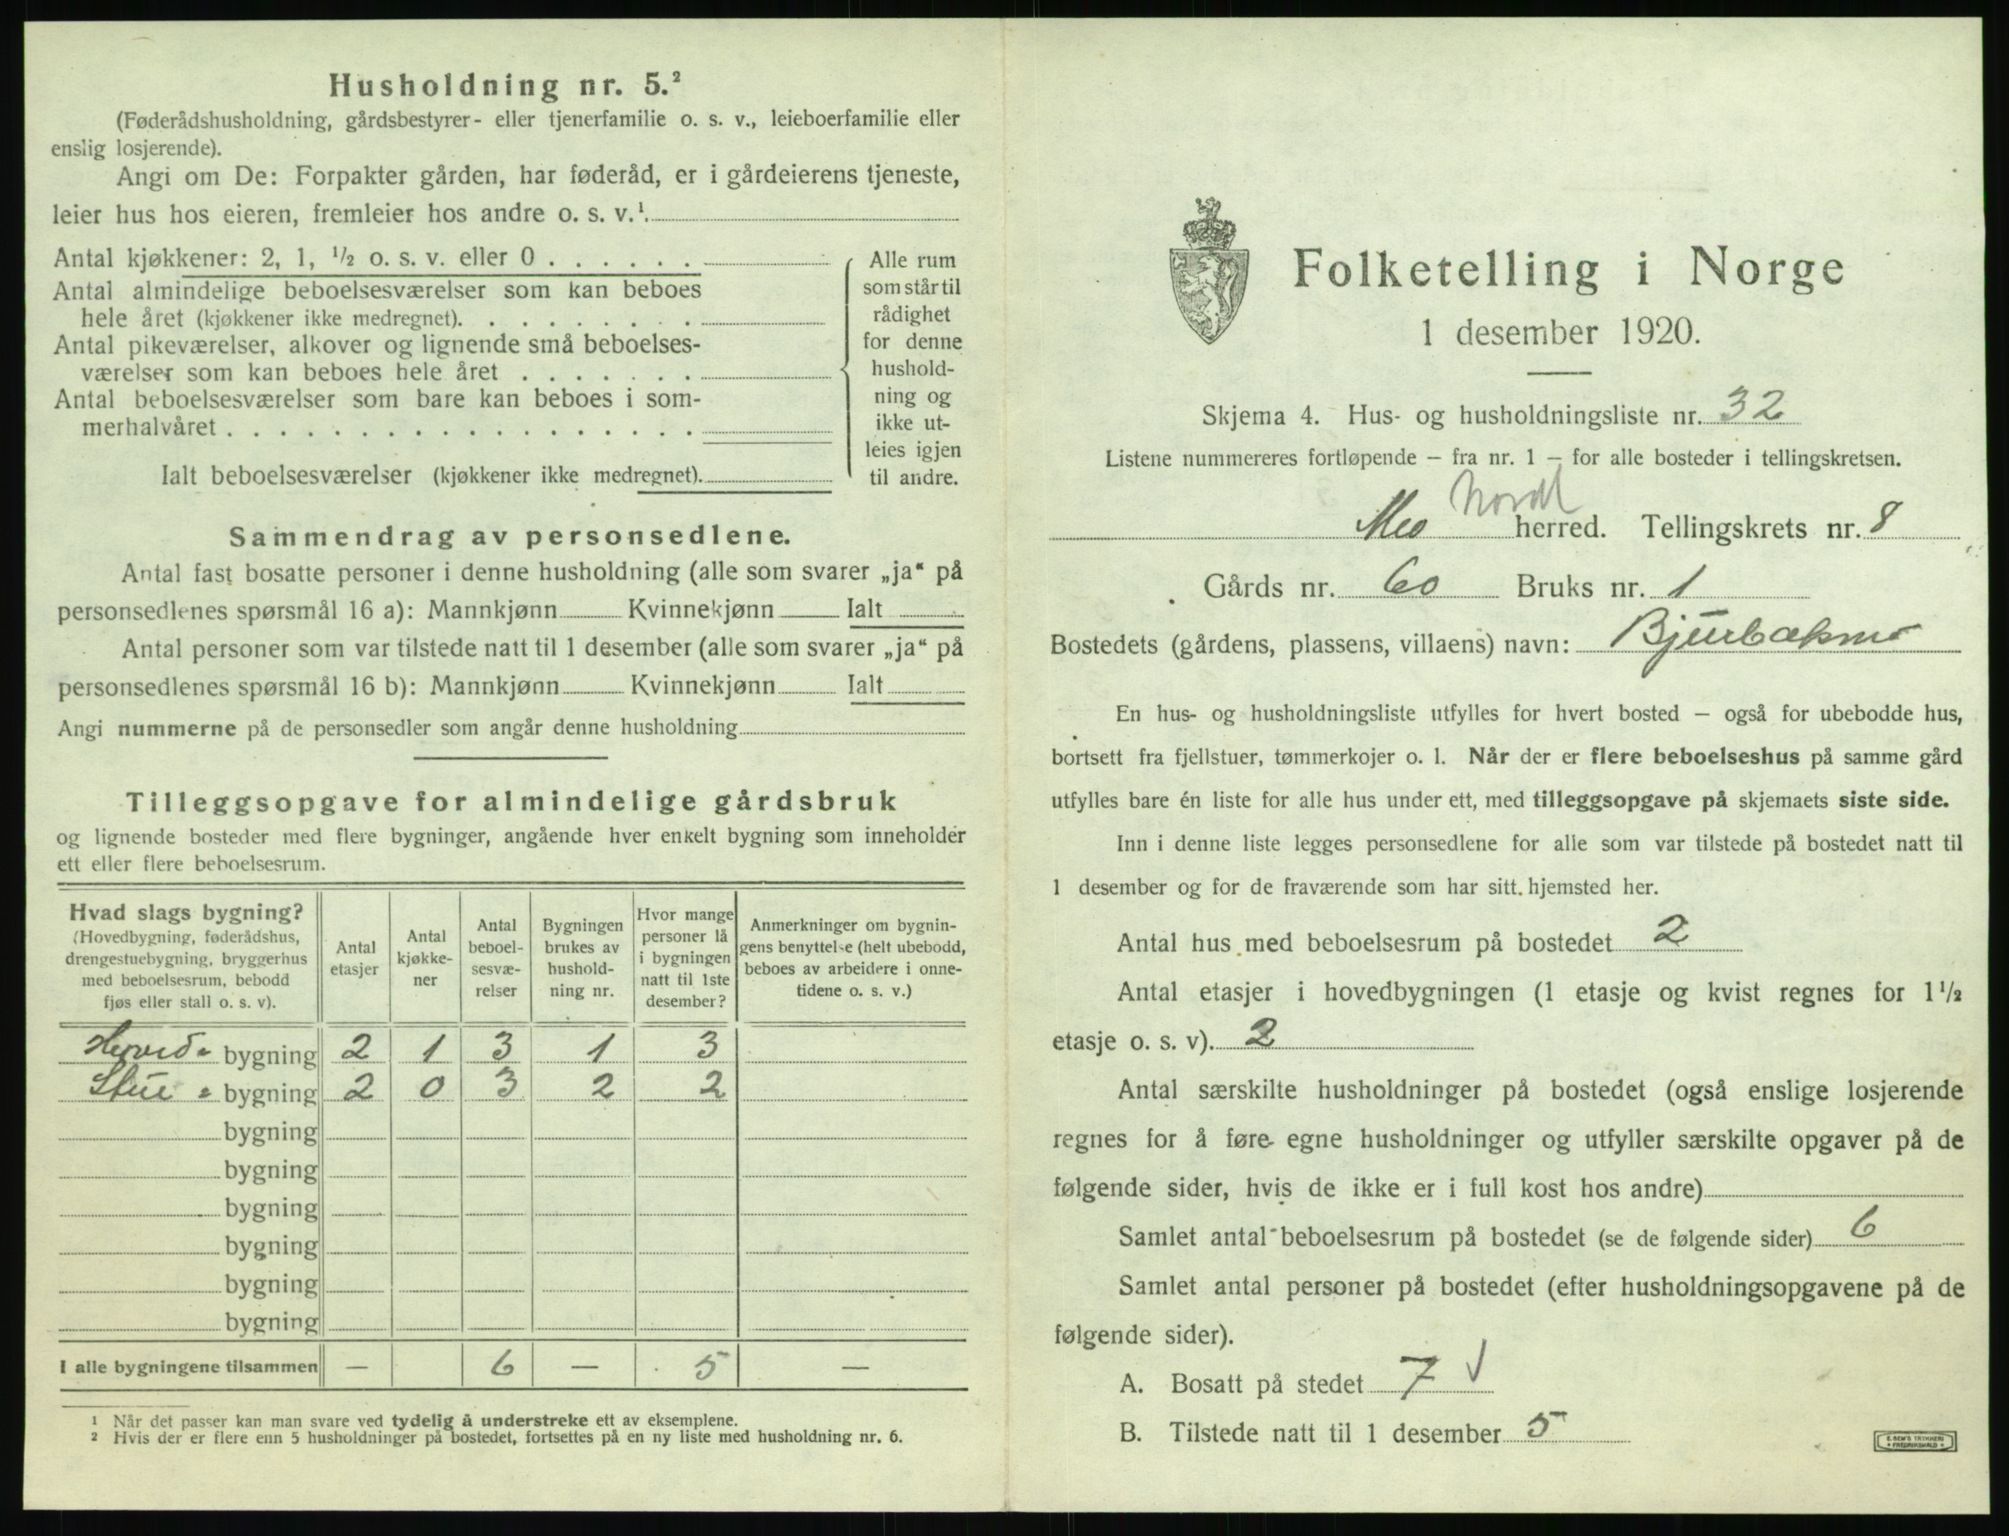 Husholdning nr. 5.²
(Føderådshusholdning, gårdsbestyrer- eller tjenerfamilie o. s. v., leieboerfamilie eller
enslig losjerende).
Angi om De: Forpakter gården, har føderåd, er i gårdeierens tjeneste,
leier hus hos eieren, fremleier hos andre o. s. v.¹
Antal kjøkkener: 2, 1, ½ o. s. v. eller 0
Antal almindelige beboelsesværelser som kan beboes
hele året (kjøkkener ikke medregnet).
Antal pikeværelser, alkover og lignende små beboelses-
værelser som kan beboes hele året
Antal beboelsesværelser som bare kan beboes i som-
merhalvåret
Ialt beboelsesværelser (kjøkkener ikke medregnet).
Alle rum
som står til
rådighet
for denne
hushold-
ning og
ikke ut-
leies igjen
til andre.
Sammendrag av personsedlene.
Antal fast bosatte personer i denne husholdning (alle som svarer „ja“ på
personsedlenes spørsmål 16 a): Mannkjønn Kvinnekjønn Ialt
Antal personer som var tilstede natt til 1 desember (alle som svarer „ja“ på
personsedlenes spørsmål 16 b): Mannkjønn Kvinnekjønn Ialt
Angi nummerne på de personsedler som angår denne husholdning
Tilleggsopgave for almindelige gårdsbruk
og lignende bosteder med flere bygninger, angående hver enkelt bygning som inneholder
ett eller flere beboelsesrum.
Hvad slags bygning?
(Hovedbygning, føderådshus,
drengestuebygning, bryggerhus
med beboelsesrum, bebodd
fjøs eller stall o. s. v).
Antal
etasjer
Antal
kjøkke-
ner
Antal
beboel-
sesvæ-
relser
Bygningen
brukes av
hushold-
ning nr.
Hvor mange
personer lå
i bygningen
natt til 1ste
desember?
Anmerkninger om bygnin-
gens benyttelse (helt ubebodd,
beboes av arbeidere i onne-
tidene o. s. v.)
Hoved- bygning 2 1 3 1 3
Stue - bygning 2 0 3 2 2
bygning
bygning
bygning
bygning
bygning
bygning
I alle bygningene tilsammen — 6 — 5 —
¹ Når det passer kan man svare ved tydelig å understreke ett av eksemplene.
² Hvis der er flere enn 5 husholdninger på bostedet, fortsettes på en ny liste med husholdning nr. 6.
Folketelling i Norge
1 desember 1920.
Skjema 4. Hus- og husholdningsliste nr. 32
Listene nummereres fortløpende – fra nr. 1 – for alle bosteder i tellingskretsen.
Nordl
Mo herred. Tellingskrets nr. 8
Gårds nr. 60 Bruks nr. 1
Bostedets (gårdens, plassens, villaens) navn: Bjurbækmo
En hus- og husholdningsliste utfylles for hvert bosted – også for ubebodde hus,
bortsett fra fjellstuer, tømmerkojer o. l. Når der er flere beboelseshus på samme gård
utfylles bare én liste for alle hus under ett, med tilleggsopgave på skjemaets siste side.
Inn i denne liste legges personsedlene for alle som var tilstede på bostedet natt til
1 desember og for de fraværende som har sitt hjemsted her.
Antal hus med beboelsesrum på bostedet 2
Antal etasjer i hovedbygningen (1 etasje og kvist regnes for 1½
etasje o. s. v). 2
Antal særskilte husholdninger på bostedet (også enslige losjerende
regnes for å føre egne husholdninger og utfyller særskilte opgaver på de
følgende sider, hvis de ikke er i full kost hos andre)
Samlet antal beboelsesrum på bostedet (se de følgende sider) 6
Samlet antal personer på bostedet (efter husholdningsopgavene på de
følgende sider).
A. Bosatt på stedet 7 √
B. Tilstede natt til 1 desember 5
E. SEM'S TRYKKERI
FREDRIKSHALD